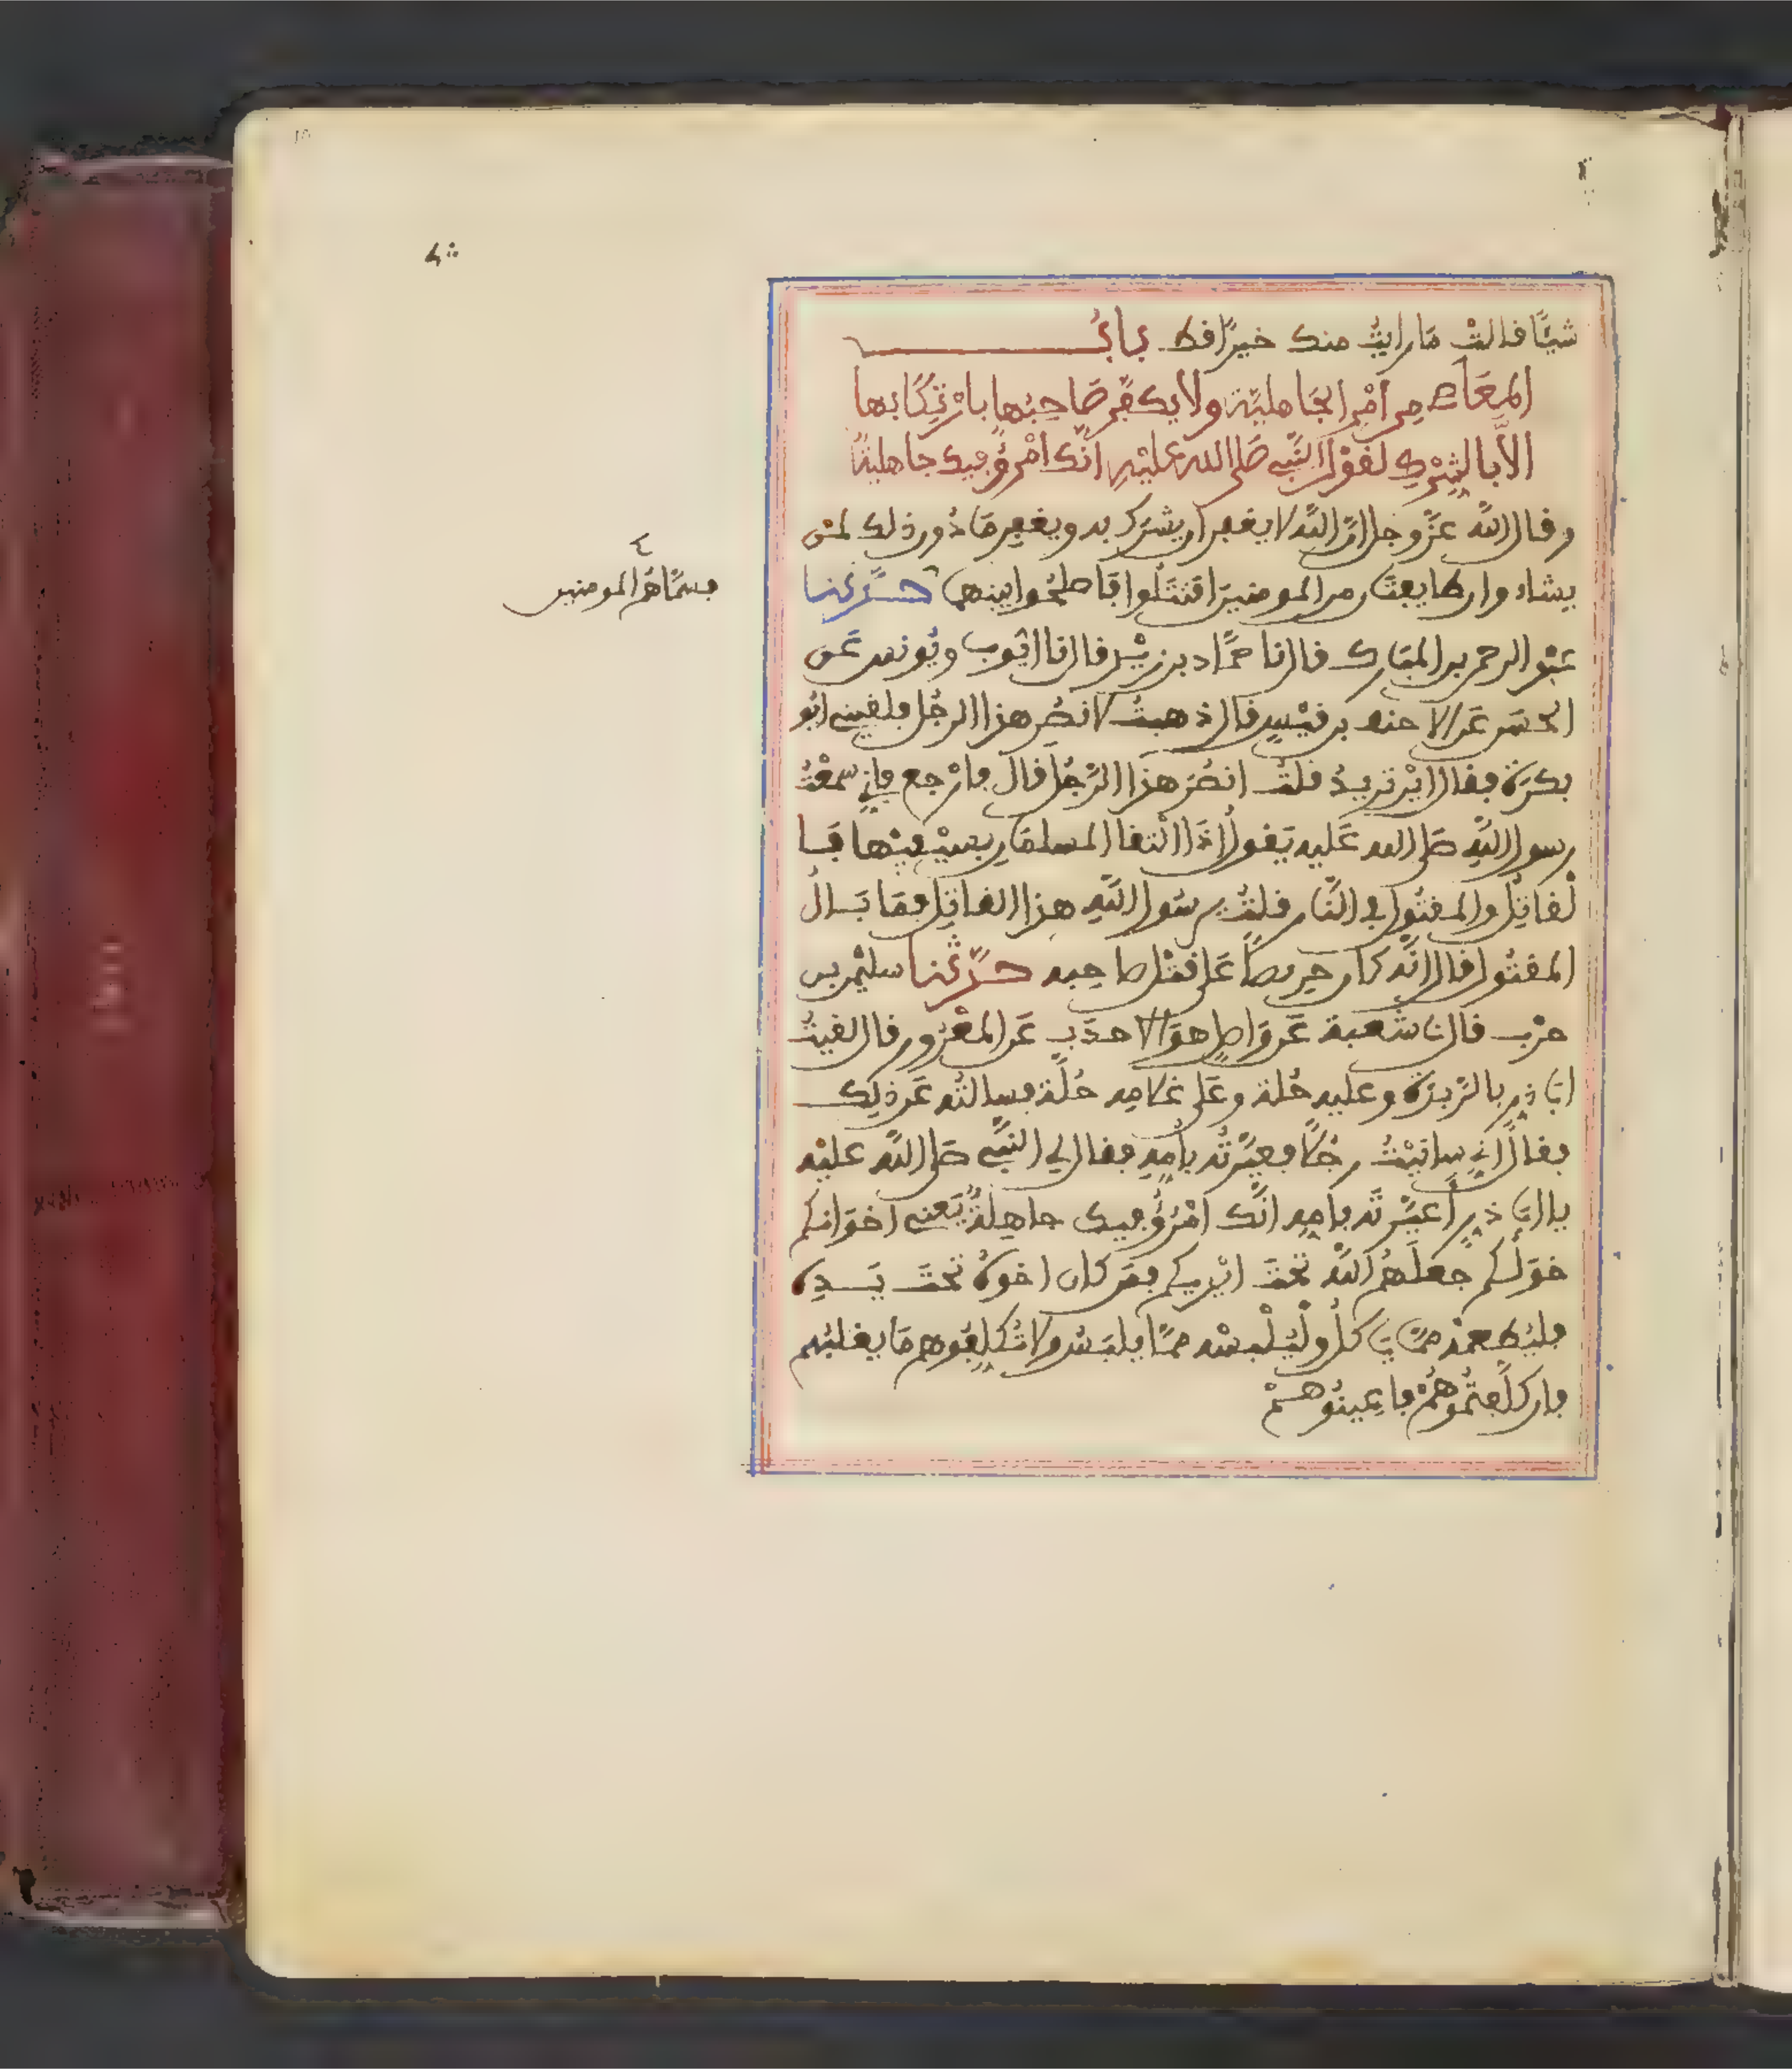 شيئًا فالتْ مَا رايتُ منك خيرًا فط بابُ
المعَاصِے مِن امْرِ الجَاهليّة ولا يكفّر صَاحِبُها بارْتِكَابها
الاّ بالشِّرْكِ لفوْل النّبِے صَلى الله عليْهِ انّك امْرؤٌ ڢيك جاهليةٌ
وفال اللَّه عزّ وجل انّ اللَّه لا يغڢر ان يشرَك به ويغڢِر مَا دُون ذلك لمَن
يشاء وان طايڢتَان من المومنينَ افتتَلُوا ڢَاصْلحُوا بينهما حدّثنا
عبْد الرحمن بن المبَارك فال نا حمَّاد بن زيْد فال نا ايّوب ويُونس عَن
الحسَن عَن الاحنڢ بن فيْسٍ فال ذهبتُ لانصُر هذا الرجُل ڢلفيني ابُو
بكرَة ڢفال ايْن تريدُ فلتُ انصُرُ هذا الرّجُل فال ڢارْجع ڢاني سمعْتُ
رسول اللَّهِ صَلى الله عَليه يَفول اذَا التفا المسلمَان بسيْڢيْهما ڢَا
لْفاتِل والمفتُول ڢى النَّار فلتُ يرسُول اللَّهِ هذا الفاتِل ڢمَا بَالُ
المفتُول فال انَّه كان حَرِيصًا عَلى فتْل صاحِبه حدّثنا سليْمن بن
حرْب فال نا شعبة عَن وَاصلٍ هوَ الاحدَب عَن المعْرُور فال لفيتُ
ابَا ذرٍ بالرّبذَة وعليه حُلة وعَلى غلامِه حُلّة ڢسالتُه عَن ذلِك
ڢفال اني سابَبْتُ رجُلًا ڢعيّرْتُه بامِّهِ ڢفال لي النبِّى صَلى اللَّه عليْه
يا ابَا ذرٍّ أَعيّرْتَه بامِّهِ انّك امْرُؤٌ ڢيك جاهِلةٌ يَعني اخوَانكم
خوَلُكم جعلَهُم اللَّه تحتَ ايْديكم ڢمَن كان اخوهُ تحتَ يَدِهِ
ڢليُطعِمْه ممَّا يَاكلُ ولْيُلْبسْه ممَّا يلبَسُ ولا تُكلِّڢُوهم مَا يغلبُهم
ڢان كلّڢتُمُوهُمْ ڢاعِينُوهُمْ
ڢسمَّاهُم المومنين